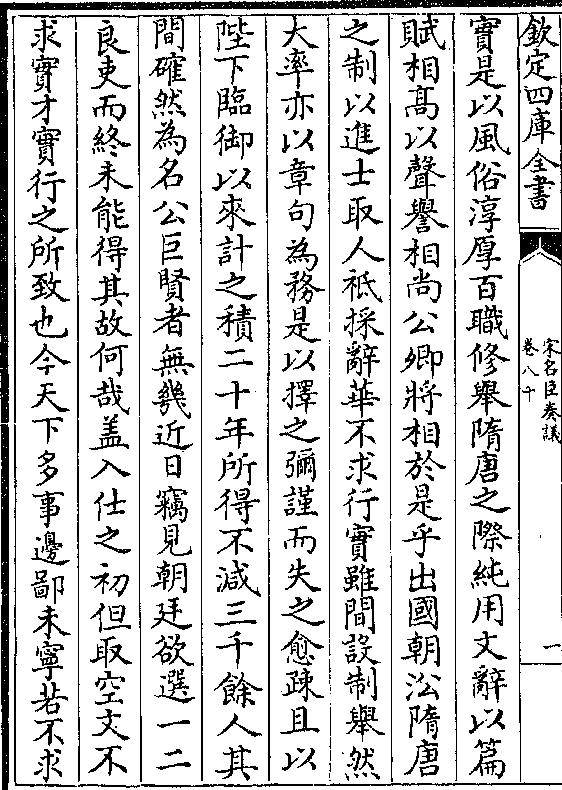 欽定四庫全書
宋名臣奏議
卷八十
一
實是以風俗淳厚百職修舉隋唐之際純用文辭以篇
賦相髙以聲譽相尚公卿將相於是乎出國朝㳂隋唐
之制以進士取人祗採辭華不求行實雖間設制舉然
大率亦以章句為務是以擇之彌謹而失之愈疎且以
陛下臨御以來計之積二十年所得不減三千餘人其
間確然為名公巨賢者無幾近日竊見朝廷欲選一二
良吏而終未能得其故何哉盖入仕之初但取空文不
求實才實行之所致也今天下多事邊鄙未寧若不求